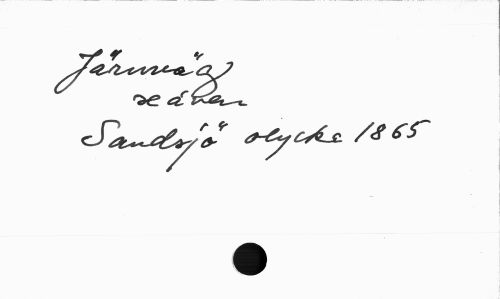 Järnväg
se även
Sandsjö olycka 1865